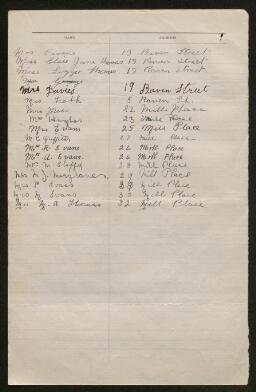 NAME ADDRESS
1
Mrs Evans 13 Baven Street
Miss Eliza Jane Thomas 17 Baven Street
Miss Lizzie Thomas 17 Baven Street
Mrs
Mrs Davies 19 Baven Street
Mrs 5 Baven St.
Mrs Rees 22 Mill Place
Mrs Hughes 23 Mill Place
Mrs Evans 25 Mill Place
M. Griffiths 27 Mill Place
Mrs A. Evans 26 Mill Place
Mrs A. Evans. 26 Mill Place
Mrs M. 28 Mill Place
Mrs M. J. Musgrave 29 Mill Place
Mrs P. Evans 30 Mill Place
Mrs M. Evans 32 Mill Place
Mrs M. A. Thomas 32 Mill Place